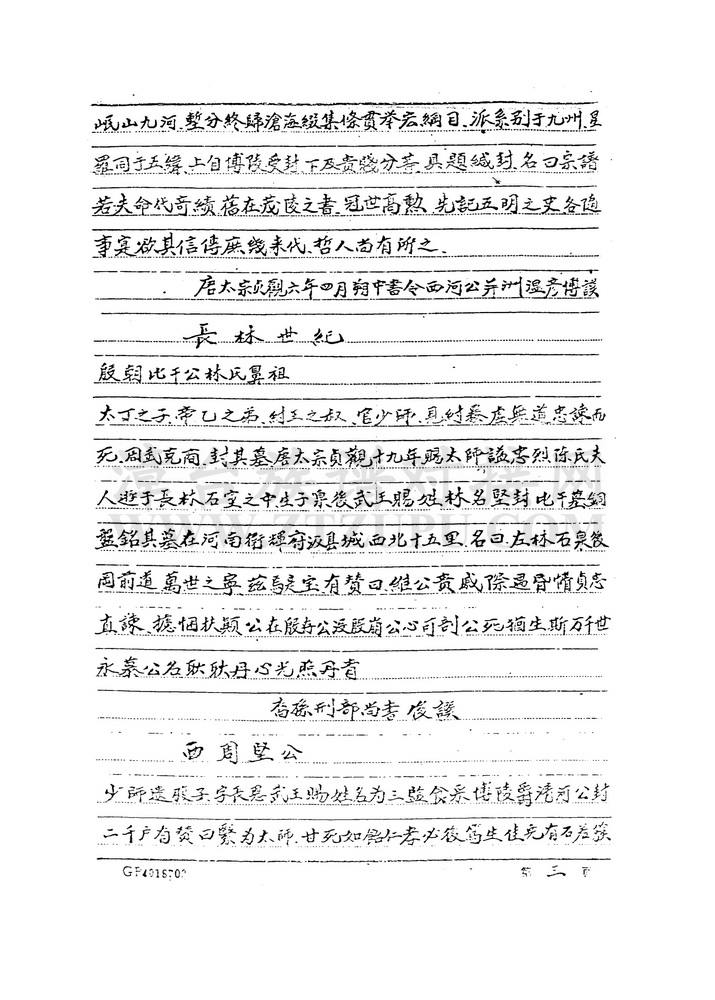 岷山九河.塹分終歸滄海綴集條貫举宏綱目.派系别于九州.星
羅同于五緯.上自博陵受封下及贵賤分蓁.具題緘封.名曰宗譜
若夫命代奇績.舊在茂陵之書.冠世高勲.先記五明之史各随
事宲欲其信傳庶幾来代.哲人尚有所之.
唐太宗贞觀六年四月朔中書令西河公并洲溫彦博譔
長林世紀
殷朝比干公林氏鼻祖
太丁之子.帝乙之弟.紂王之叔.官少師.見紂暴虐無道忠諫而
死.周武克商.封其墓唐太宗貞觀十九年賜太師謚忠烈陈氏夫
人遊于長林石室之中生子泉後武王賜姓.林名堅封比干墓銅
盤銘其墓在河南衛輝府汲县城西北十五里.名曰.左林石泉後
岡前道萬世之寧兹 宝有赞曰.維公贵戚際遇昏情貞忠
直諫.扶颠公在殷存公没殷崩公心可剖公死猶生斯万仟世
永慕公名耿耿丹心光照丹青
裔孫刑部尚書俊譔
西周坚公
少師遗腹子字長思武王賜姓名为三監食采博陵爵清河公封
二千户有赞曰緊为太师.甘死如飴仁孝必後篤生佳 有石岩簇
GF4018702 第三頁
漳台族谱对接网
WWW.ZTZUPU.COM